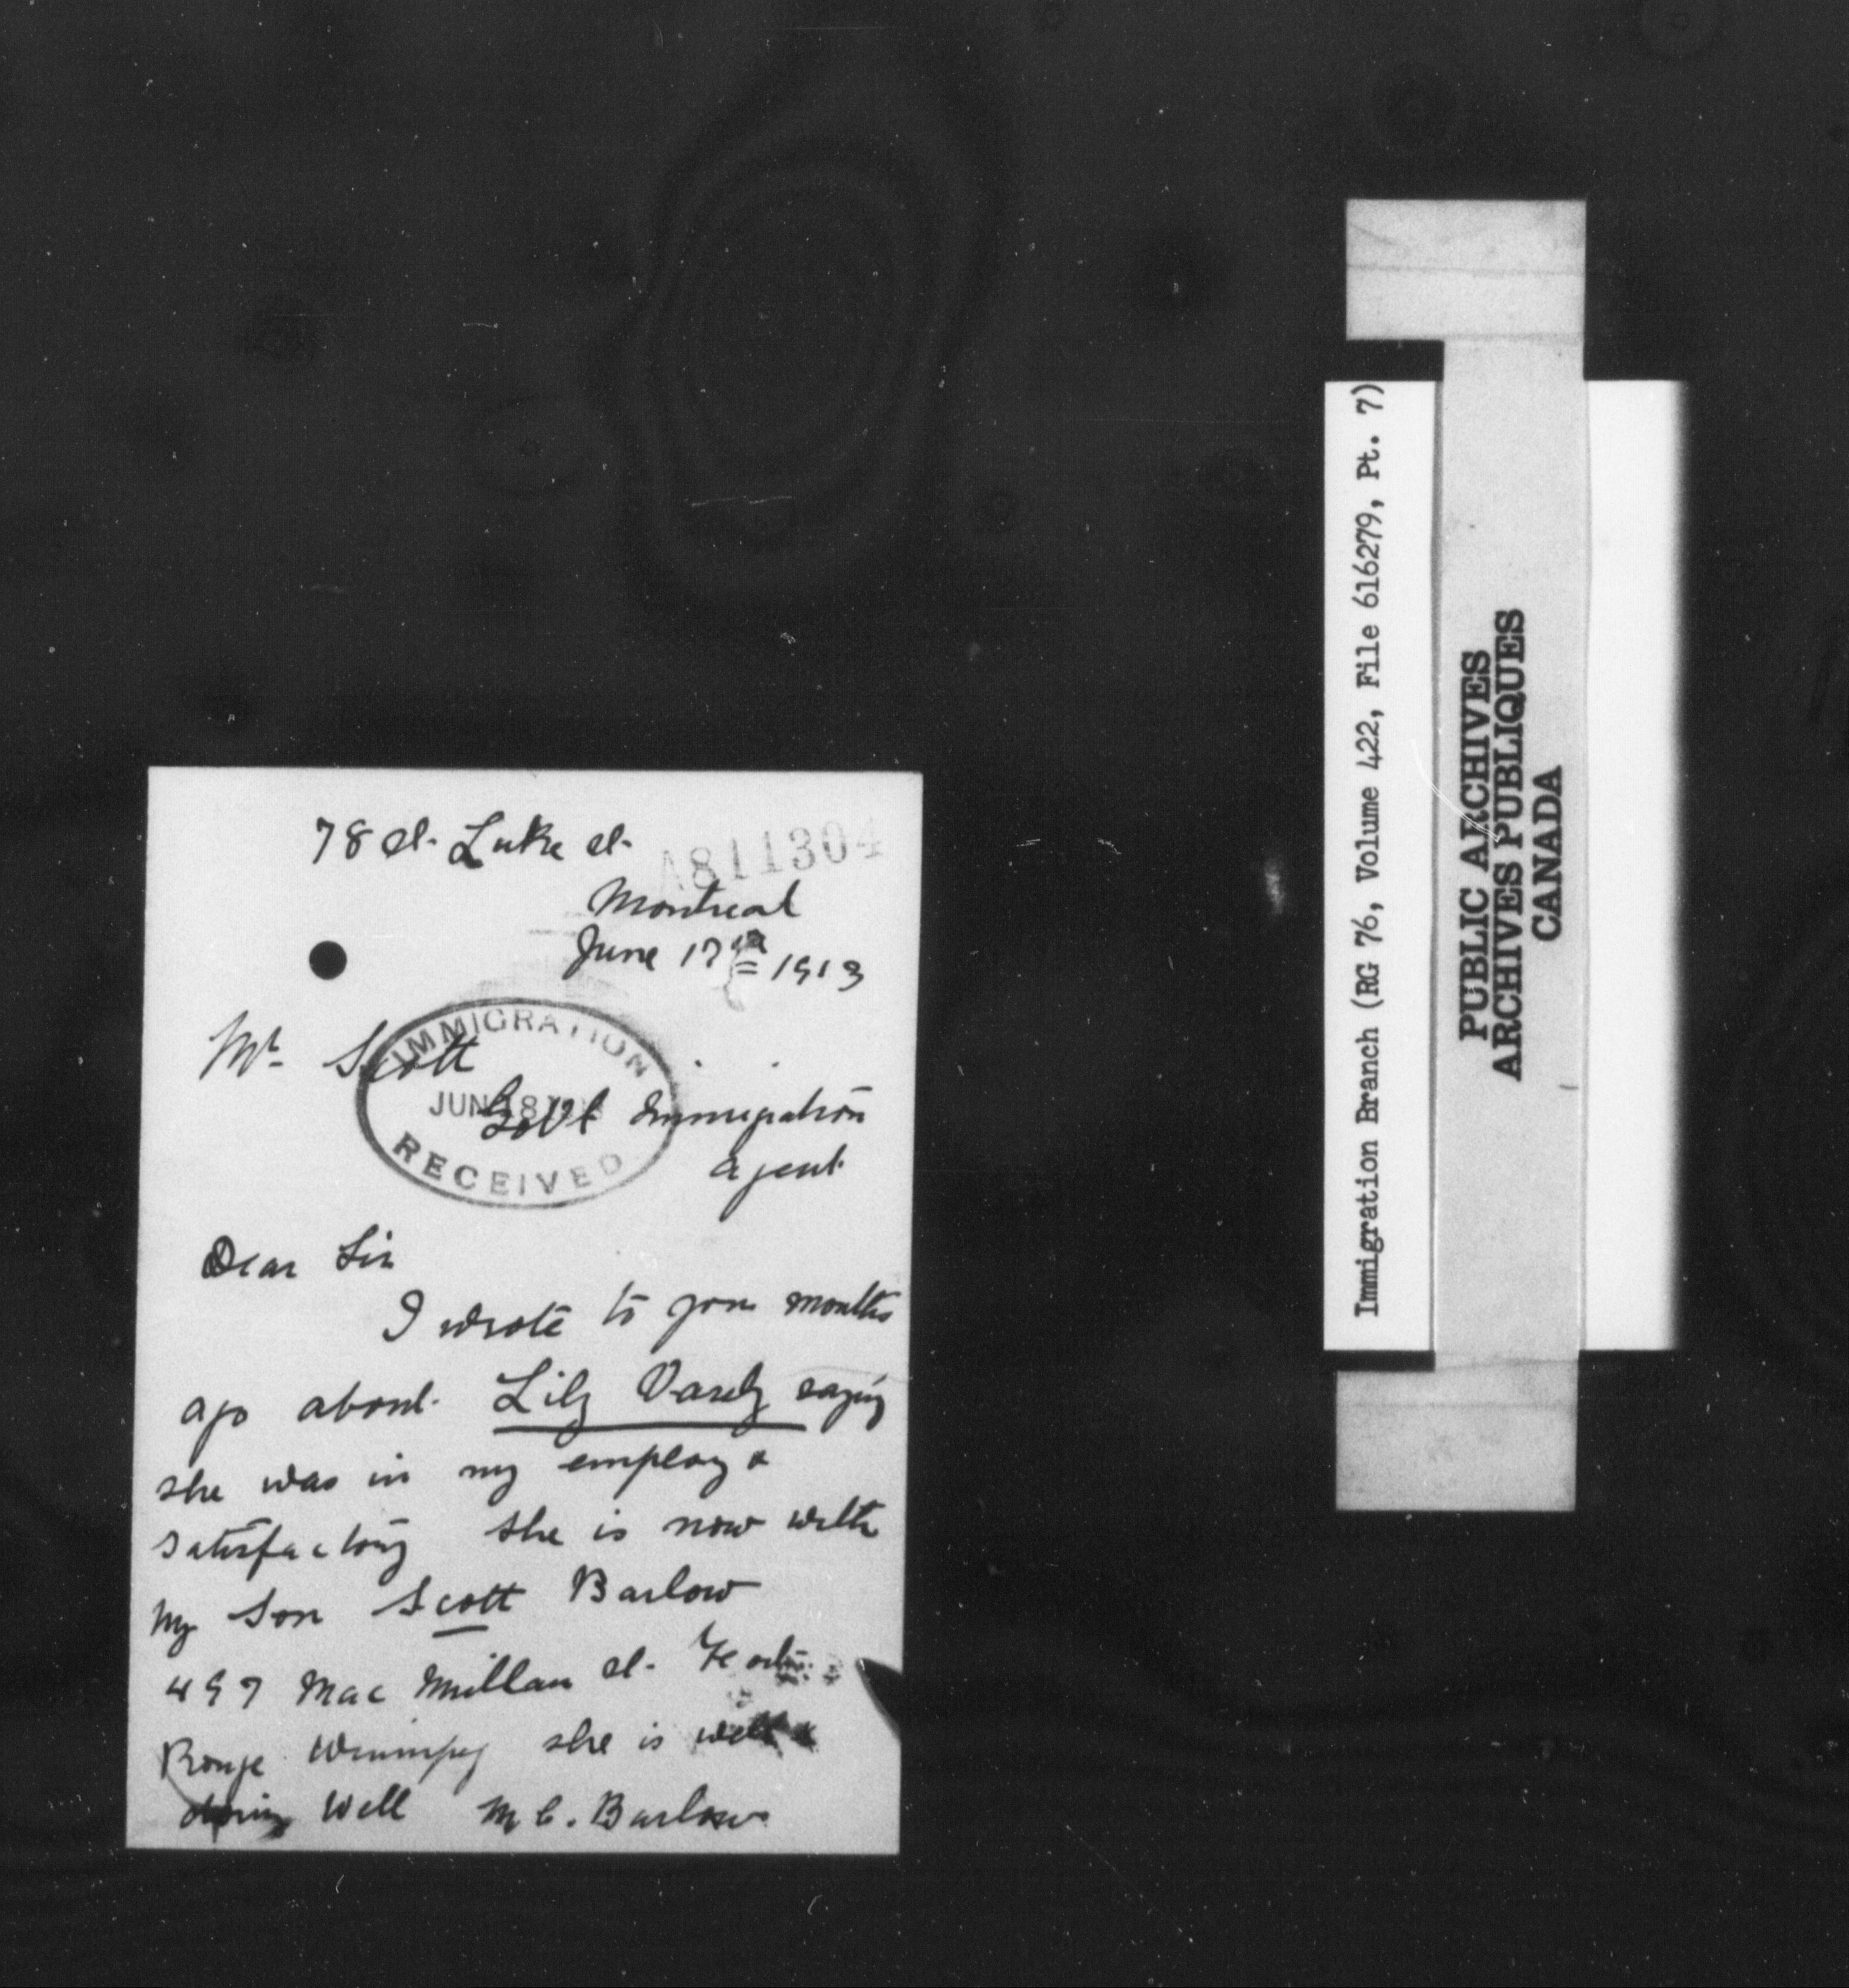 78 St. Luke St.
A811304
Montreal
June 17th 1913
Mr. Scott
IMMIGRATION
JUN 18
RECEIVED
Govt Immigration
Agent
Dear Sir
I wrote to you months
ago about Lily saying
she was in my employ &
satisfactory she is now with
my Son Scott Barlow
497 Mac Millan St.
Rouge Winnipeg she is well &
doing well M C. Barlow
Immigration Branch (RG 76, Volume 422, File 616279, Pt. 7)
PUBLIC ARCHIVES
ARCHIVES PUBLIQUES
CANADA